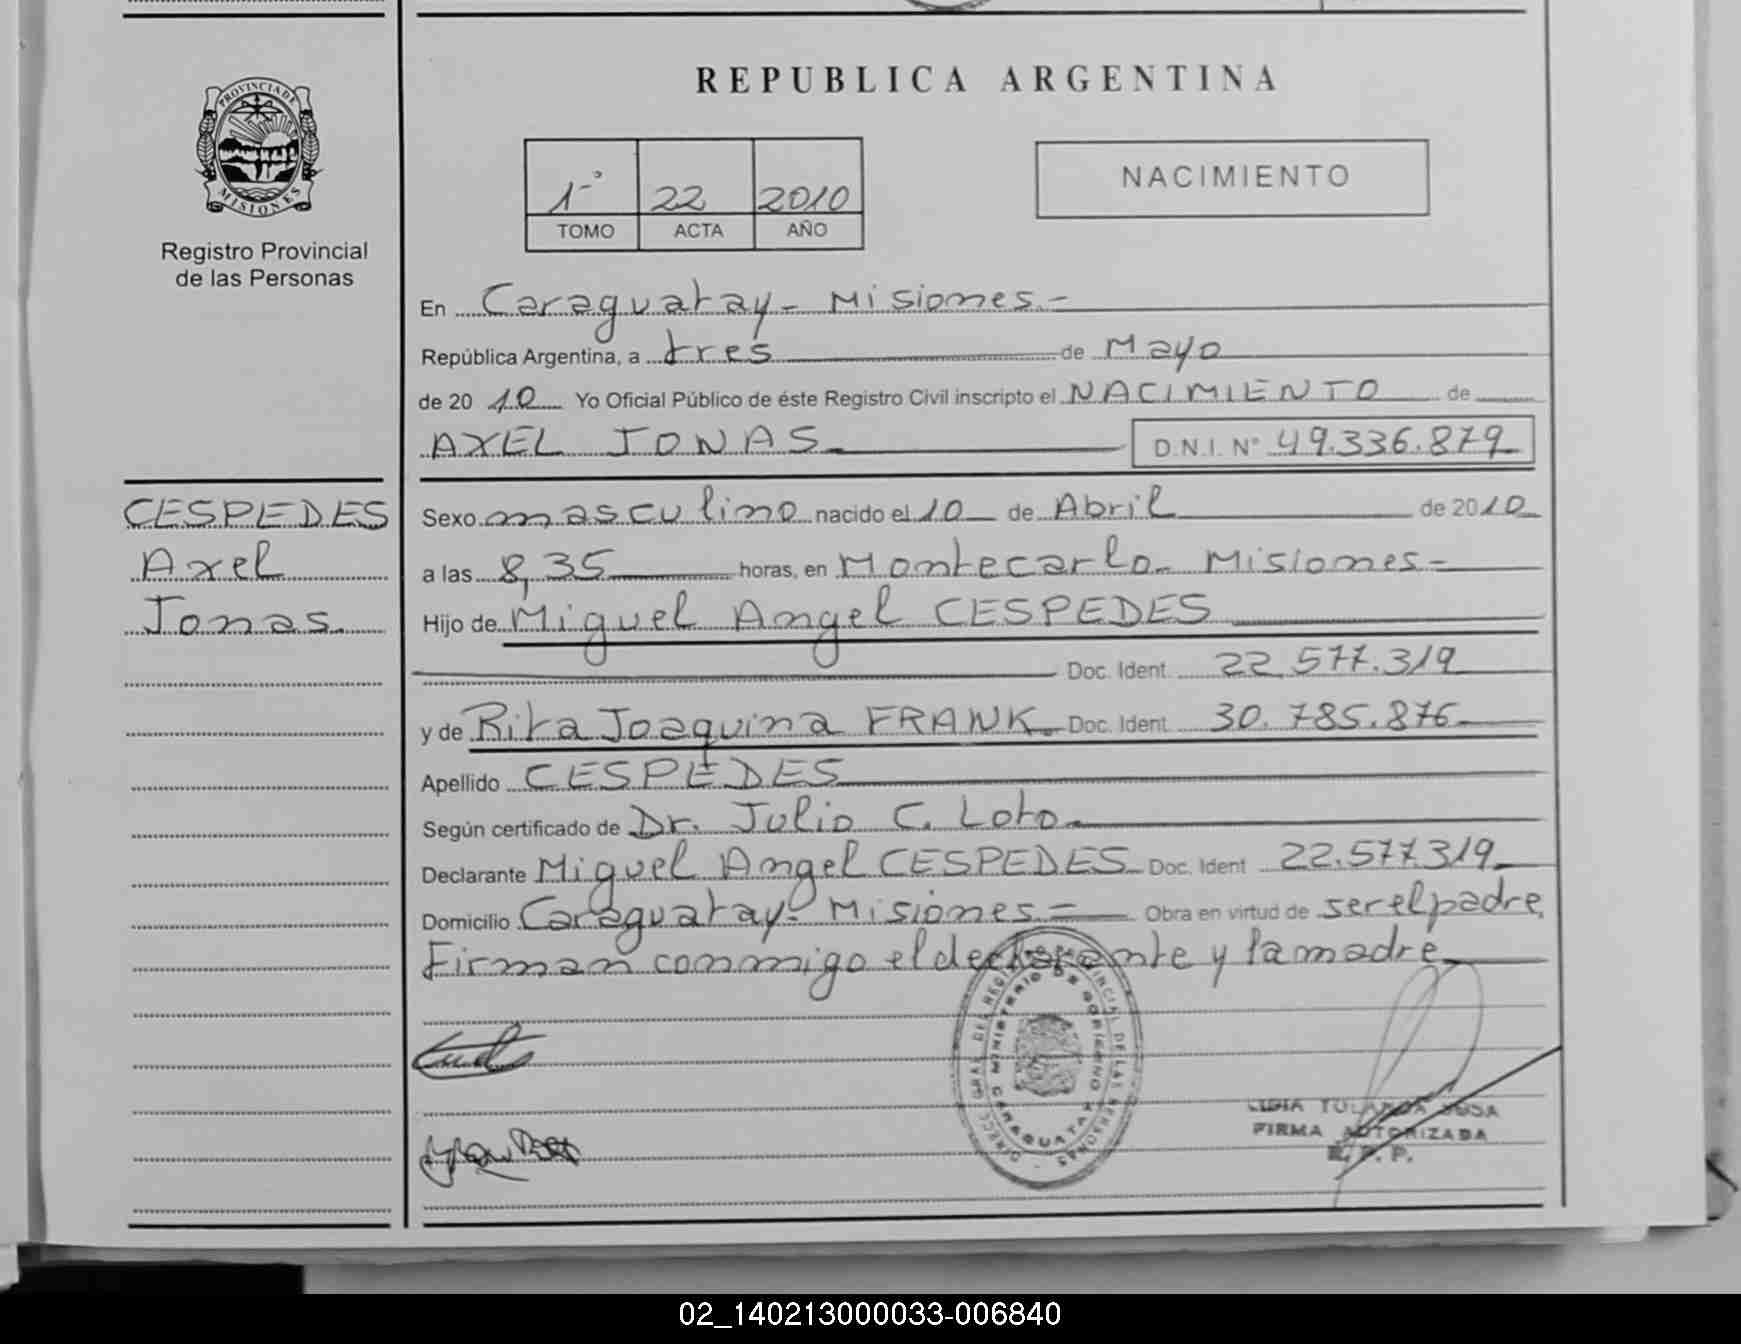 REPUBLICA ARGENTINA
PROVINCIA DE
MISIONES
Registro Provincial
de las Personas
1º 22 2010
TOMO ACTA AÑO
NACIMIENTO
En Caraguatay - Misiones.-
República Argentina, a tres de Mayo
de 20 10 Yo Oficial Público de éste Registro Civil inscripto el NACIMIENTO de
AXEL JONAS D.N.I. Nº 49.336.879
CESPEDES
Axel
Jonas.
Sexo masculino nacido el 10 de Abril de 2010
a las 8,35 horas, en Montecarlo - Misiones -
Hijo de Miguel Angel CESPEDES
Doc. Ident. 22.577.319
y de Rita Joaquina FRANK. Doc. Ident. 30.785.876
Apellido CESPEDES
Según certificado de Dr. Julio C. Loto
Declarante Miguel Angel CESPEDES Doc. Ident 22.577.319
Domicilio Caraguatay - Misiones - Obra en virtud de ser el padre.
Firman conmigo el declarante y la madre
MINISTERIO DE GOBIERNO
CARAGUATAY
LIDIA YOLANDA SOSA
FIRMA AUTORIZADA
R. P. P.
02_140213000033-006840